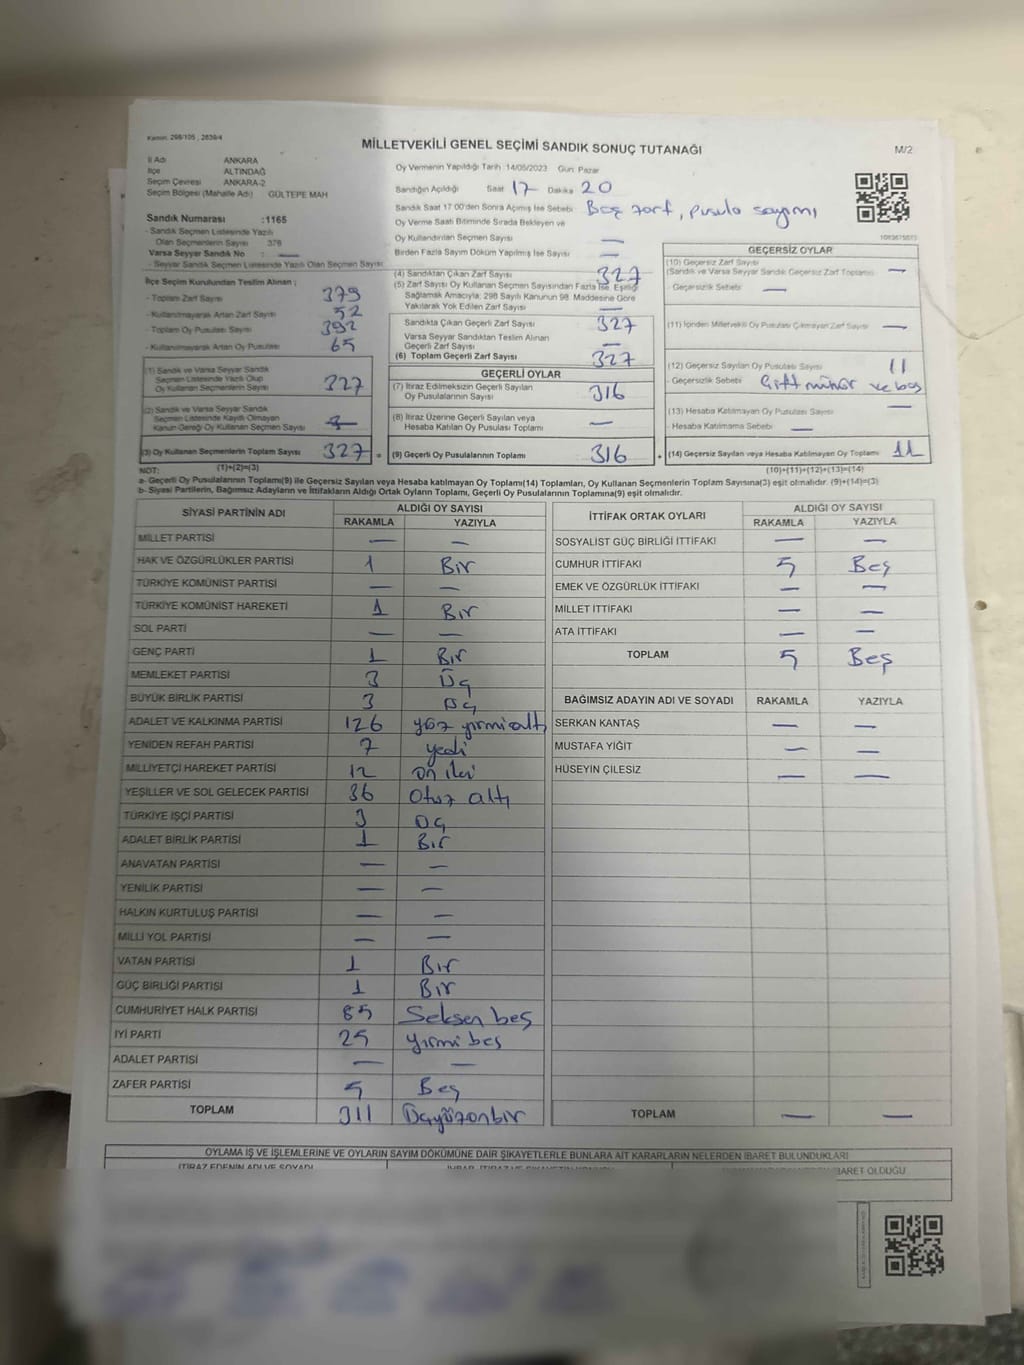 Kanun: 298/105 , 2839/4
MİLLETVEKİLİ GENEL SEÇİMİ SANDIK SONUÇ TUTANAĞI
M/2
İl Adı ANKARA
İlçe ALTINDAĞ
Seçim Çevresi ANKARA-2
Seçim Bölgesi (Mahalle Adı) GÜLTEPE MAH
Sandık Numarası :1165
- Sandık Seçmen Listesinde Yazılı
Olan Seçmenlerin Sayısı 376
Varsa Seyyar Sandık No : —
- Seyyar Sandık Seçmen Listesinde Yazılı Olan Seçmen Sayısı:
Oy Vermenin Yapıldığı Tarih :14/05/2023 Gün: Pazar
Sandığın Açıldığı Saat 17 Dakika 20
Sandık Saat 17:00'den Sonra Açılmış İse Sebebi Beş zarf, pusula sayımı
Oy Verme Saati Bitiminde Sırada Bekleyen ve
Oy Kullandırılan Seçmen Sayısı —
Birden Fazla Sayım Döküm Yapılmış İse Sayısı —
İlçe Seçim Kurulundan Teslim Alınan ;
- Toplam Zarf Sayısı 379
- Kullanılmayarak Artan Zarf Sayısı 52
- Toplam Oy Pusulası Sayısı 392
- Kullanılmayarak Artan Oy Pusulası 65
(1) Sandık ve Varsa Seyyar Sandık
Seçmen Listesinde Yazılı Olup
Oy Kullanan Seçmenlerin Sayısı 327
(2) Sandık ve Varsa Seyyar Sandık
Seçmen Listesinde Kayıtlı Olmayan
Kanun Gereği Oy Kullanan Seçmen Sayısı
(3) Oy Kullanan Seçmenlerin Toplam Sayısı 327 =
(1)+(2)=(3)
(4) Sandıktan Çıkan Zarf Sayısı 327
(5) Zarf Sayısı Oy Kullanan Seçmen Sayısından Fazla İse, Eşitliği
Sağlamak Amacıyla; 298 Sayılı Kanunun 98. Maddesine Göre
Yakılarak Yok Edilen Zarf Sayısı —
Sandıkta Çıkan Geçerli Zarf Sayısı 327
Varsa Seyyar Sandıktan Teslim Alınan
Geçerli Zarf Sayısı —
(6) Toplam Geçerli Zarf Sayısı 327
GEÇERLİ OYLAR
(7) İtiraz Edilmeksizin Geçerli Sayılan
Oy Pusulalarının Sayısı 316
(8) İtiraz Üzerine Geçerli Sayılan veya
Hesaba Katılan Oy Pusulası Toplamı —
(9) Geçerli Oy Pusulalarının Toplamı 316 +
GEÇERSİZ OYLAR
(10) Geçersiz Zarf Sayısı
(Sandık ve Varsa Seyyar Sandık Geçersiz Zarf Toplamı) —
- Geçersizlik Sebebi: —
(11) İçinden Milletvekili Oy Pusulası Çıkmayan Zarf Sayısı —
(12) Geçersiz Sayılan Oy Pusulası Sayısı 11
- Geçersizlik Sebebi Çift mühür ve boş
(13) Hesaba Katılmayan Oy Pusulası Sayısı —
- Hesaba Katılmama Sebebi —
(14) Geçersiz Sayılan veya Hesaba Katılmayan Oy Toplamı 11
(10)+(11)+(12)+(13)=(14)
NOT:
a- Geçerli Oy Pusulalarının Toplamı(9) ile Geçersiz Sayılan veya Hesaba katılmayan Oy Toplamı(14) Toplamları, Oy Kullanan Seçmenlerin Toplam Sayısına(3) eşit olmalıdır. (9)+(14)=(3)
b- Siyasi Partilerin, Bağımsız Adayların ve İttifakların Aldığı Ortak Oyların Toplamı, Geçerli Oy Pusulalarının Toplamına(9) eşit olmalıdır.
SİYASİ PARTİNİN ADI ALDIĞI OY SAYISI
RAKAMLA YAZIYLA
MİLLET PARTİSİ — —
HAK VE ÖZGÜRLÜKLER PARTİSİ 1 Bir
TÜRKİYE KOMÜNİST PARTİSİ — —
TÜRKİYE KOMÜNİST HAREKETİ 1 Bir
SOL PARTİ — —
GENÇ PARTİ 1 Bir
MEMLEKET PARTİSİ 3 Üç
BÜYÜK BİRLİK PARTİSİ 3 Üç
ADALET VE KALKINMA PARTİSİ 126 yüz yirmi altı
YENİDEN REFAH PARTİSİ 7 yedi
MİLLİYETÇİ HAREKET PARTİSİ 12 on iki
YEŞİLLER VE SOL GELECEK PARTİSİ 36 Otuz altı
TÜRKİYE İŞÇİ PARTİSİ 3 Üç
ADALET BİRLİK PARTİSİ 1 Bir
ANAVATAN PARTİSİ — —
YENİLİK PARTİSİ — —
HALKIN KURTULUŞ PARTİSİ — —
MİLLİ YOL PARTİSİ — —
VATAN PARTİSİ 1 Bir
GÜÇ BİRLİĞİ PARTİSİ 1 Bir
CUMHURİYET HALK PARTİSİ 85 Seksen beş
İYİ PARTİ 25 yirmi beş
ADALET PARTİSİ — —
ZAFER PARTİSİ 5 Beş
TOPLAM 311 Üçyüzonbir
İTTİFAK ORTAK OYLARI ALDIĞI OY SAYISI
RAKAMLA YAZIYLA
SOSYALİST GÜÇ BİRLİĞİ İTTİFAKI — —
CUMHUR İTTİFAKI 5 Beş
EMEK VE ÖZGÜRLÜK İTTİFAKI — —
MİLLET İTTİFAKI — —
ATA İTTİFAKI — —
TOPLAM 5 Beş
BAĞIMSIZ ADAYIN ADI VE SOYADI RAKAMLA YAZIYLA
SERKAN KANTAŞ — —
MUSTAFA YİĞİT — —
HÜSEYİN ÇİLESİZ — —
TOPLAM — —
OYLAMA İŞ VE İŞLEMLERİNE VE OYLARIN SAYIM DÖKÜMÜNE DAİR ŞİKAYETLERLE BUNLARA AİT KARARLARIN NELERDEN İBARET BULUNDUKLARI
İTİRAZ EDENİN ADI VE SOYADI
İBARET OLDUĞU